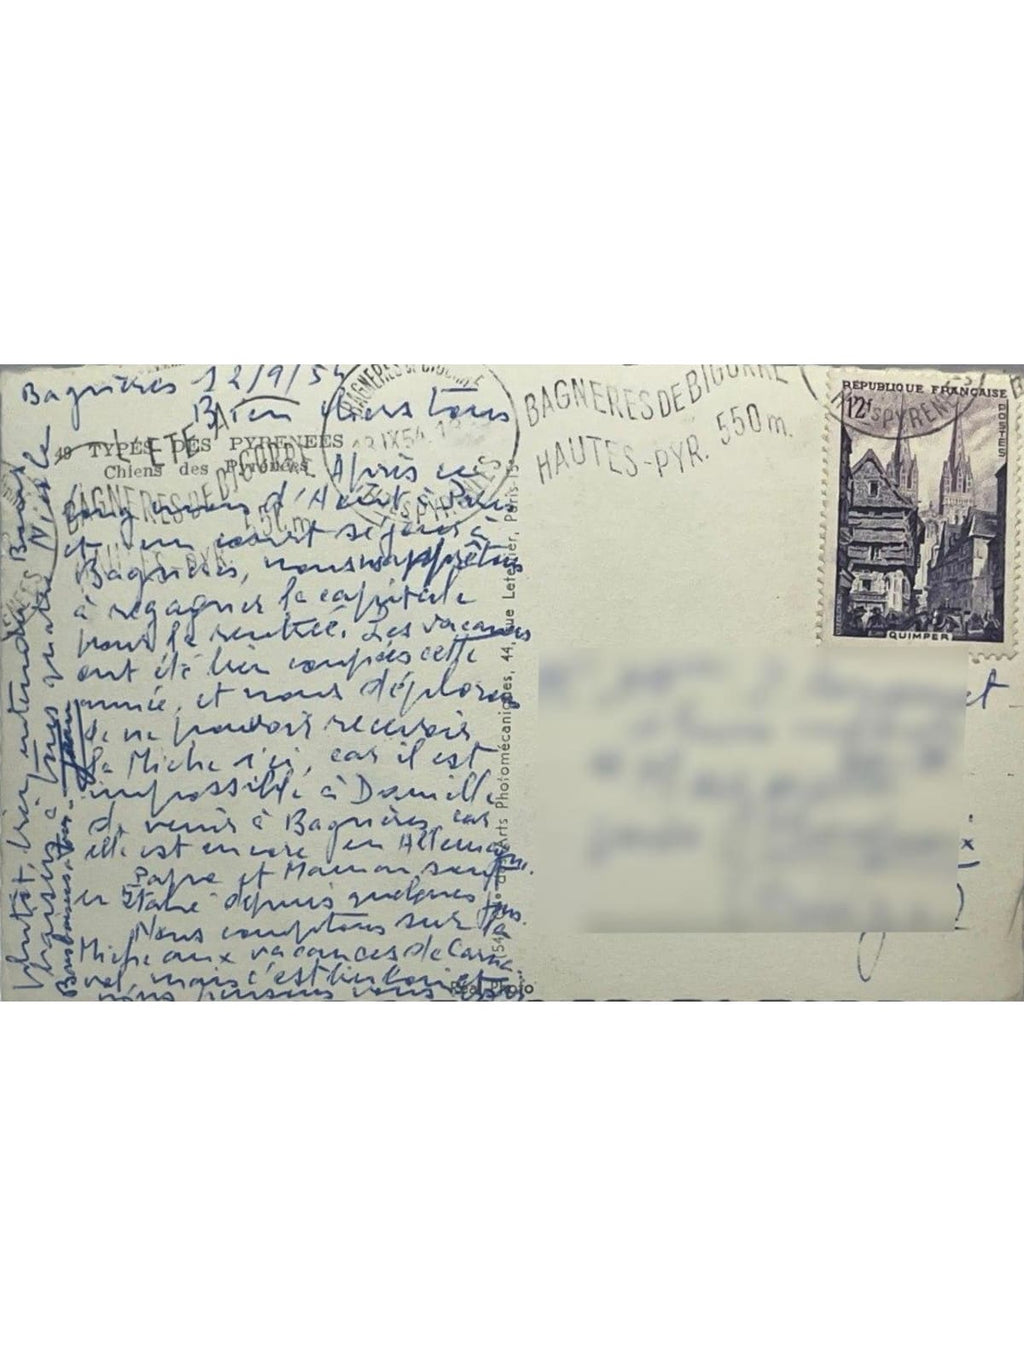 Bagnères 12/9/54
Bien chers tous
49 TYPES DES PYRENEES
Chiens des Pyrénées
Après un
long mois d'Août à Paris
et un court séjour à
Bagnères, nous nous apprêtons
à regagner la capitale
pour la rentrée. Les vacances
ont été bien coupées cette
année, et nous déplorons
de ne pouvoir recevoir
la Miche ici, car il est
impossible à Danielle
de venir à Bagnères, car
elle est encore en Allemagne.
Papa et Maman sont
en Italie depuis quelques jours.
Nous comptons sur la
Miche aux vacances de Carna-
val, mais c'est bien loin et
nous pensons vous
plutôt, bien entendu. Bons
baisers à tous quatre
Nicole
BAGNERES DE BIGORRE
13 IX 54
HTES PYRENEES
L'ETE A
BAGNERES DE BIGORRE
550m.
HAUTES-PYR.
BAGNERES DE BIGORRE
HAUTES-PYR. 550m.
REPUBLIQUE FRANÇAISE
12f
POSTES
QUIMPER
Arts Photomécaniques, 44, rue Letellier, Paris-15
Réal-Photo
et